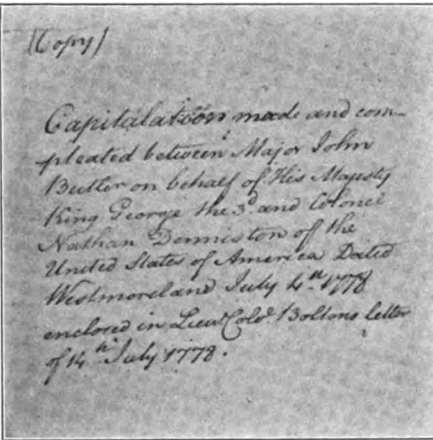 (Copy)
Capitalation made and com-
pleated between Major John
Butler on behalf of His Majesty
King George the 3d. and Colonel
Nathan Denniston of the
United States of America Dated
Westmoreland July 4th. 1778
enclosed in Lieut Colo. Boltons letter
of 14th July 1778.